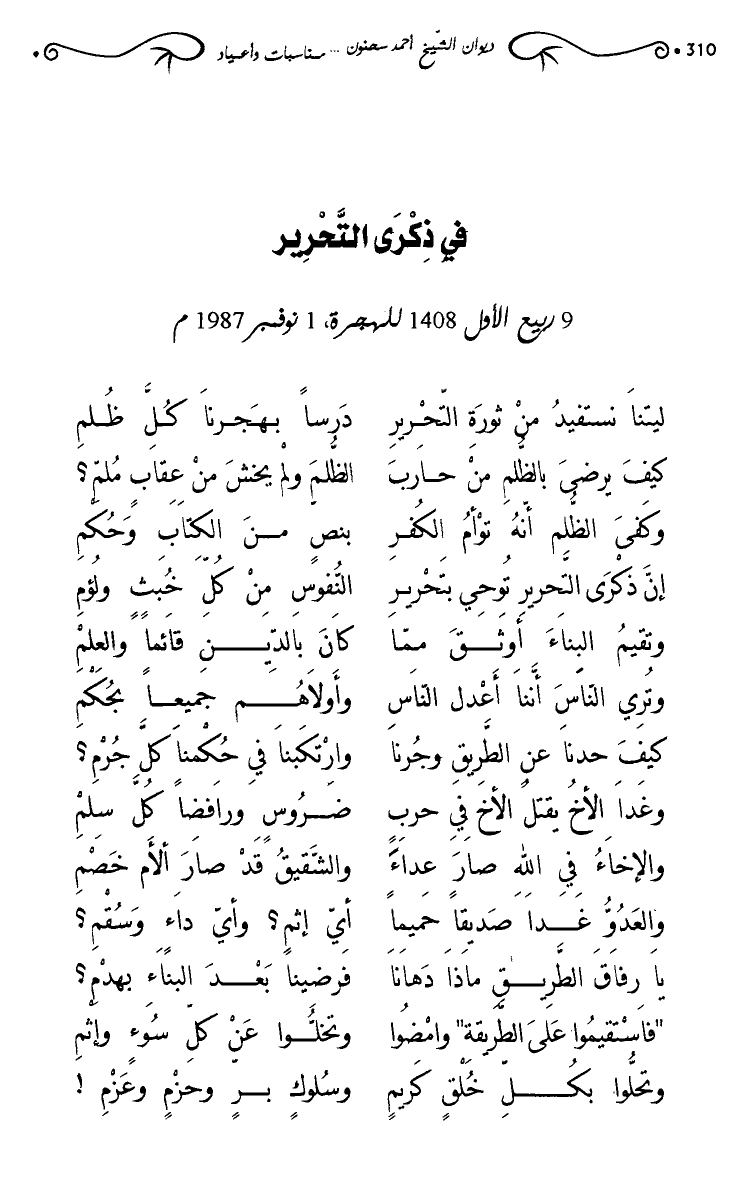 310 ديوان الشّيخ أحمد سحنون ... مناسبات وأعياد
في ذِكْرَى التَّحْرِير
9 ربيع الأول 1408 للهجرة، 1 نوفمبر 1987 م
ليتنا نستفيدُ منْ ثورَةِ التّحْريرِ دَرساً بهَجرناَ كُلَّ ظُلمِ
كيفَ يرضىَ بالظُلمِ منْ حاربَ الظُلمَ ولمْ يخشَ منْ عِقابٍ مُلمّ؟
وكفىَ الظُلِم أنّهُ توْأمُ الكُفرِ بنصٍ منَ الكتَابِ وَحُكْمِ
إنَّ ذكْرَى التّحريرِ تُوحي بتَحْريرِ النُّفوسِ مِنْ كُلّ خُبثٍ ولُؤمِ
وتقيمُ البِناءَ أوثَقَ ممّا كانَ بالدّينِ قائماً والعلمْ
وتُرِي النّاسَ أَننَّا أَعْدل النّاس وأَولاَهُم جميعاً بحُكْمَ
كيفَ حدنا عنِ الطَّريقِ وجُرنا وارْتكَبنا في حُكْمناَ كلَّ جُرْمِ؟
وغَدا الأخُ يقتلُ الأخَ في حربٍ ضرُوسٍ ورافضاً كلَّ سلِمْ
والإخاءُ في اللهِ صارَ عداءً والشَّقيقُ قدْ صارَ ألأَم خَصْمِ
والعَدُوُّ غدا صَديقاً حَميماً أيّ إثمٍ؟ وأيّ داءٍ وَسُقْمِ؟
يا رفاقَ الطَّريقِ ماذا دَهانَا فرضيناَ بَعْدَ البنَاءِ بهدْمِ؟
"فاسْتقيمُوا علىَ الطَّريقة" وامْضُوا وتخلُّوا عَنْ كلّ سُوءٍ وإثْمِ
وتحلُّوا بكُلّ خُلْقٍ كَريمٍ وسُلوكٍ برٍ وحزْمٍ وعَزْمِ !